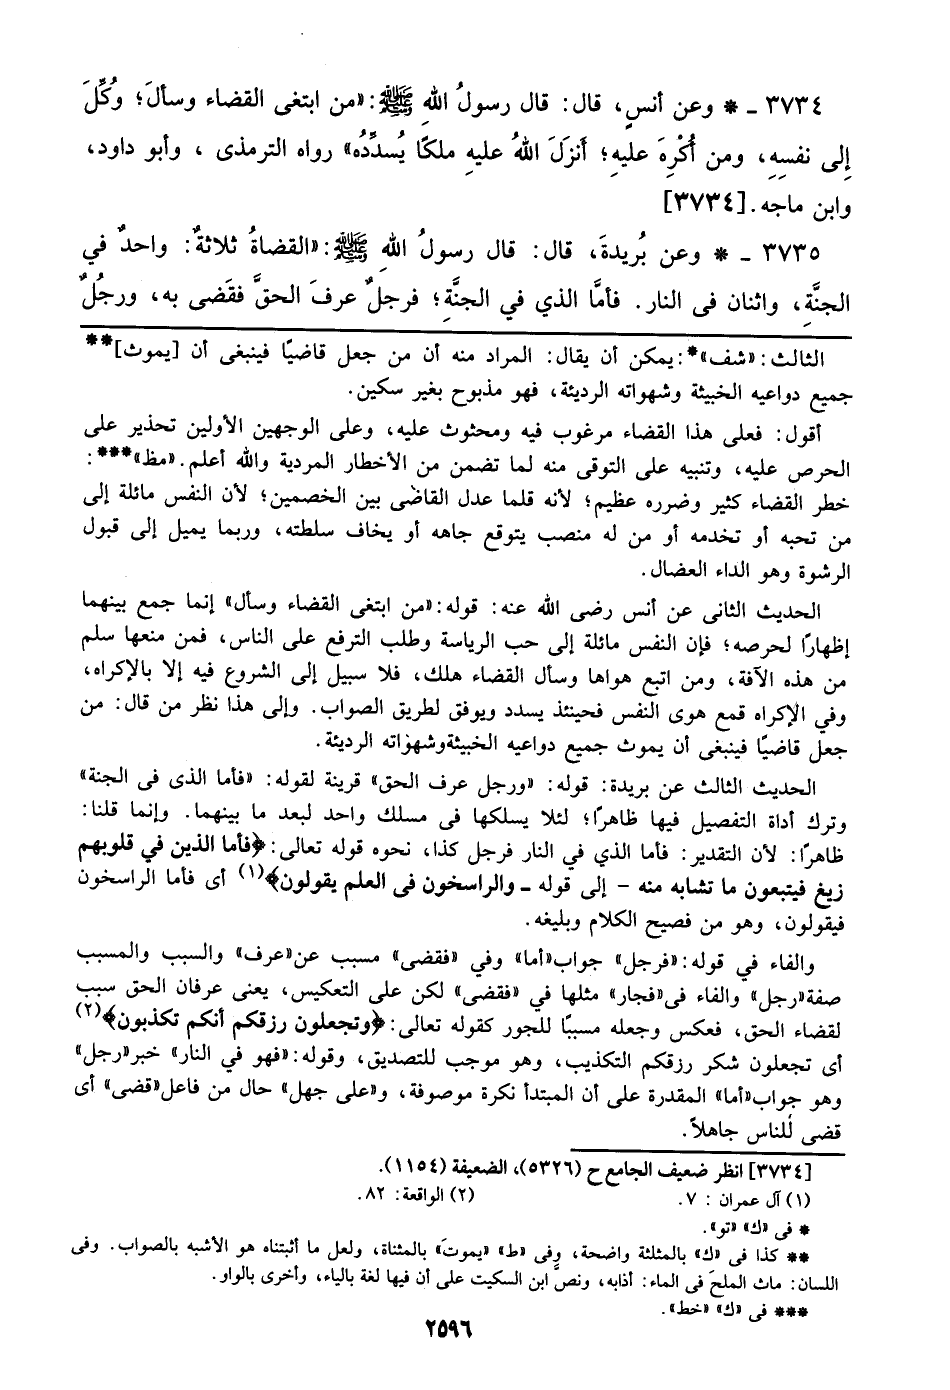 ٣٧٣٤ ـ * وعن أنسٍ، قال: قال رسولُ اللهِ ﷺ: «من ابتغى القضاء وسألَ؛ وُكِّلَ
إِلى نفسِهِ، ومن أُكْرِهَ عليهِ؛ أَنزَلَ اللهُ عليهِ ملكًا يُسدِّدُه» رواه الترمذى ، وأبو داود،
وابن ماجه. [٣٧٣٤]
٣٧٣٥ ـ * وعن بُريدةَ، قال: قال رسولُ اللهِ ﷺ: «القضاةُ ثلاثةٌ: واحدٌ في
الجنَّةِ، واثنان فى النار. فأمَّا الذي في الجنَّةِ؛ فرجلٌ عرفَ الحقَّ فقَضى به، ورجُلٌ
الثالث: «شف»*: يمكن أن يقال: المراد منه أن من جعل قاضيًا فينبغى أن [يموث]**
جميع دواعيه الخبيثة وشهواته الرديئة، فهو مذبوح بغير سكين.
أقول: فعلى هذا القضاء مرغوب فيه ومحثوث عليه، وعلى الوجهين الأولين تحذير على
الحرص عليه، وتنبيه على التوقى منه لما تضمن من الأخطار المردية والله أعلم. «مظ»***:
خطر القضاء كثير وضرره عظيم؛ لأنه قلما عدل القاضى بين الخصمين؛ لأن النفس مائلة إلى
من تحبه أو تخدمه أو من له منصب يتوقع جاهه أو يخاف سلطته، وربما يميل إلى قبول
الرشوة وهو الداء العضال.
الحديث الثانى عن أنس رضى الله عنه: قوله: «من ابتغى القضاء وسأل» إنما جمع بينهما
إظهارًا لحرصه؛ فإن النفس مائلة إلى حب الرياسة وطلب الترفع على الناس، فمن منعها سلم
من هذه الآفة، ومن اتبع هواها وسأل القضاء هلك، فلا سبيل إلى الشروع فيه إلا بالإكراه،
وفي الإكراه قمع هوى النفس فحينئذ يسدد ويوفق لطريق الصواب. وإلى هذا نظر من قال: من
جعل قاضيًا فينبغى أن يموث جميع دواعيه الخبيثةوشهواته الرديئة.
الحديث الثالث عن بريدة: قوله: «ورجل عرف الحق» قرينة لقوله: «فأما الذى فى الجنة»
وترك أداة التفصيل فيها ظاهرًا؛ لئلا يسلكها فى مسلك واحد لبعد ما بينهما. وإنما قلنا:
ظاهرًا: لأن التقدير: فأما الذي في النار فرجل كذا، نحوه قوله تعالى: ﴿فأما الذين في قلوبهم
زيغ فيتبعون ما تشابه منه – إلى قوله ـ والراسخون فى العلم يقولون﴾(١) أى فأما الراسخون
فيقولون، وهو من فصيح الكلام وبليغه.
والفاء في قوله: «فرجل» جواب«أما» وفي «فقضى» مسبب عن«عرف» والسبب والمسبب
صفة«رجل» والفاء فى«فجار» مثلها في «فقضى» لكن على التعكيس، يعنى عرفان الحق سبب
لقضاء الحق، فعكس وجعله مسببًا للجور كقوله تعالى: ﴿وتجعلون رزقكم أنكم تكذبون﴾(٢)
أى تجعلون شكر رزقكم التكذيب، وهو موجب للتصديق، وقوله: «فهو في النار» خبر«رجل»
وهو جواب«أما» المقدرة على أن المبتدأ نكرة موصوفة، و«على جهل» حال من فاعل«قضى» أى
قضى للناس جاهلاً.
[٣٧٣٤] انظر ضعيف الجامع ح (٥٣٢٦)، الضعيفة (١١٥٤).
(١) آل عمران : ٧. (٢) الواقعة: ٨٢.
* فى «ك» «تو».
** كذا فى «ك» بالمثلثة واضحة، وفى «ط» «يموت» بالمثناة، ولعل ما أثبتناه هو الأشبه بالصواب. وفى
اللسان: ماث الملحَ فى الماء: أذابه، ونصَّ ابن السكيت على أن فيها لغة بالياء، وأخرى بالواو.
*** فى «ك» «خط».
٢٥٩٦